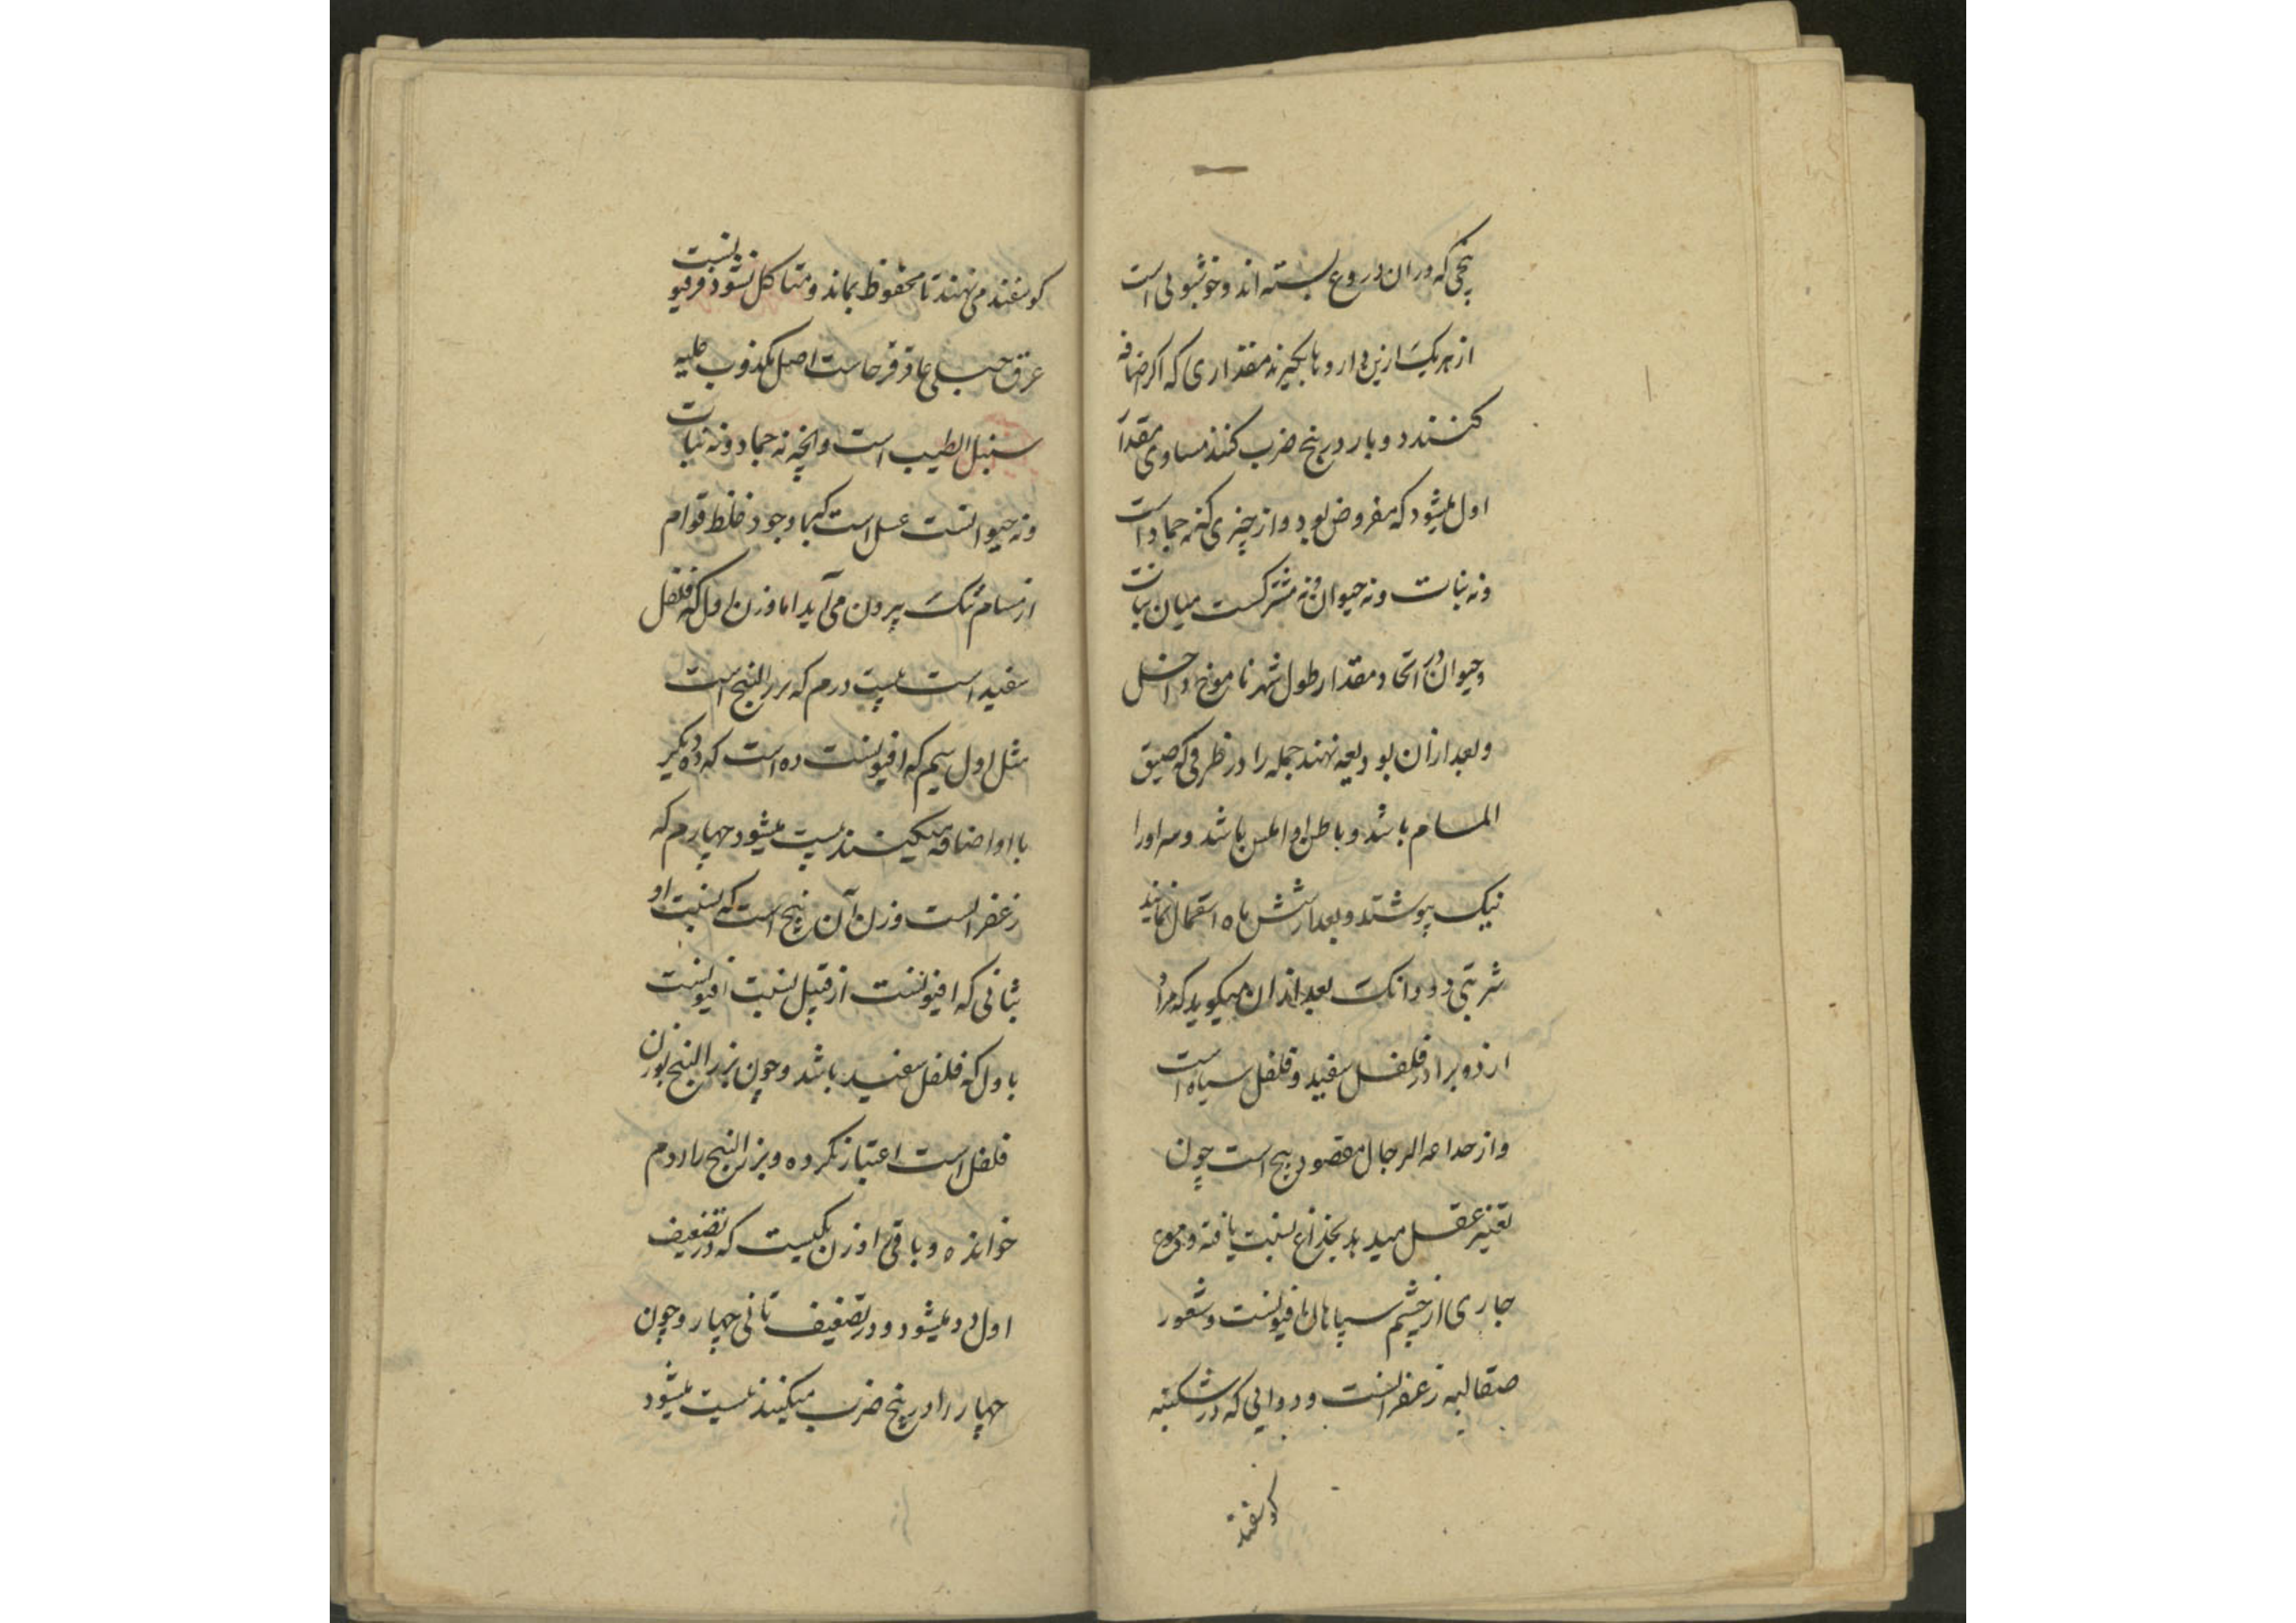 بیخی که دران دروع بسته اند و خوشبوئی است
از هر یک ازین دارو ها بگیرند مقداری که اکر اضافه
کنند دو بار در پنج ضرب کنند مساوی مقدار
اول میشود که مفروض بود و از چیزی که نه جماد است
و نه نبات و نه حیوان و نه مشترکست میان نبات
و حیوان در اتحاد مقدار طول شهر نا موخ داخل
و بعد ازان بودیعه نهند جمله را در ظرفی که ضیق
المسام باشد و باطن او املس باشد و سر او را
نیک بپوشند و بعد از شش ماه استعمال نمایند
شربتی دو دانک بعد ازان میکوید که مراد
از دو برادر فلفل سفید و فلفل سیاه است
و از خداعه الرجال مقصود بنج است چون
تغییر عقل میدهد بخداع نسبت یافته و دموع
جاری از چشم سپاهان افیونست و شعور
صقالبه زعفرانست و دوایی که در شکنبه
کوسفند
کوسفند می نهند تا محفوظ بماند و متاکل نشود فرفیونست
عرق جبلی عاقرقرحاست اصل مکذوب علیه
سنبل الطیب است و انچه نه جماد و نه نبات
و نه حیوانست عسل است که با وجود غلظ قوام
از مسام تنک بیرون می آید اما وزن اول که فلفل
سفید است بیست درم که بزر البنج است
مثل اول سیم که افیونست ده است که ده دیگر
با او اضافه میکنند بیست میشود چهارم که
زعفرانست وزن آن پنج است که نسبت او
بثانی که افیونست از قبیل نسبت افیونست
باول که فلفل سفید باشد و چون بزر البنج بوزن
فلفل است اعتبار نکرده و بزر البنج را دوم
خوانده و باقی اوزن یکیست که در تضعیف
اول دو میشود و در تضعیف ثانی چهار و چون
چهار را در پنج ضرب میکنند بیست میشود